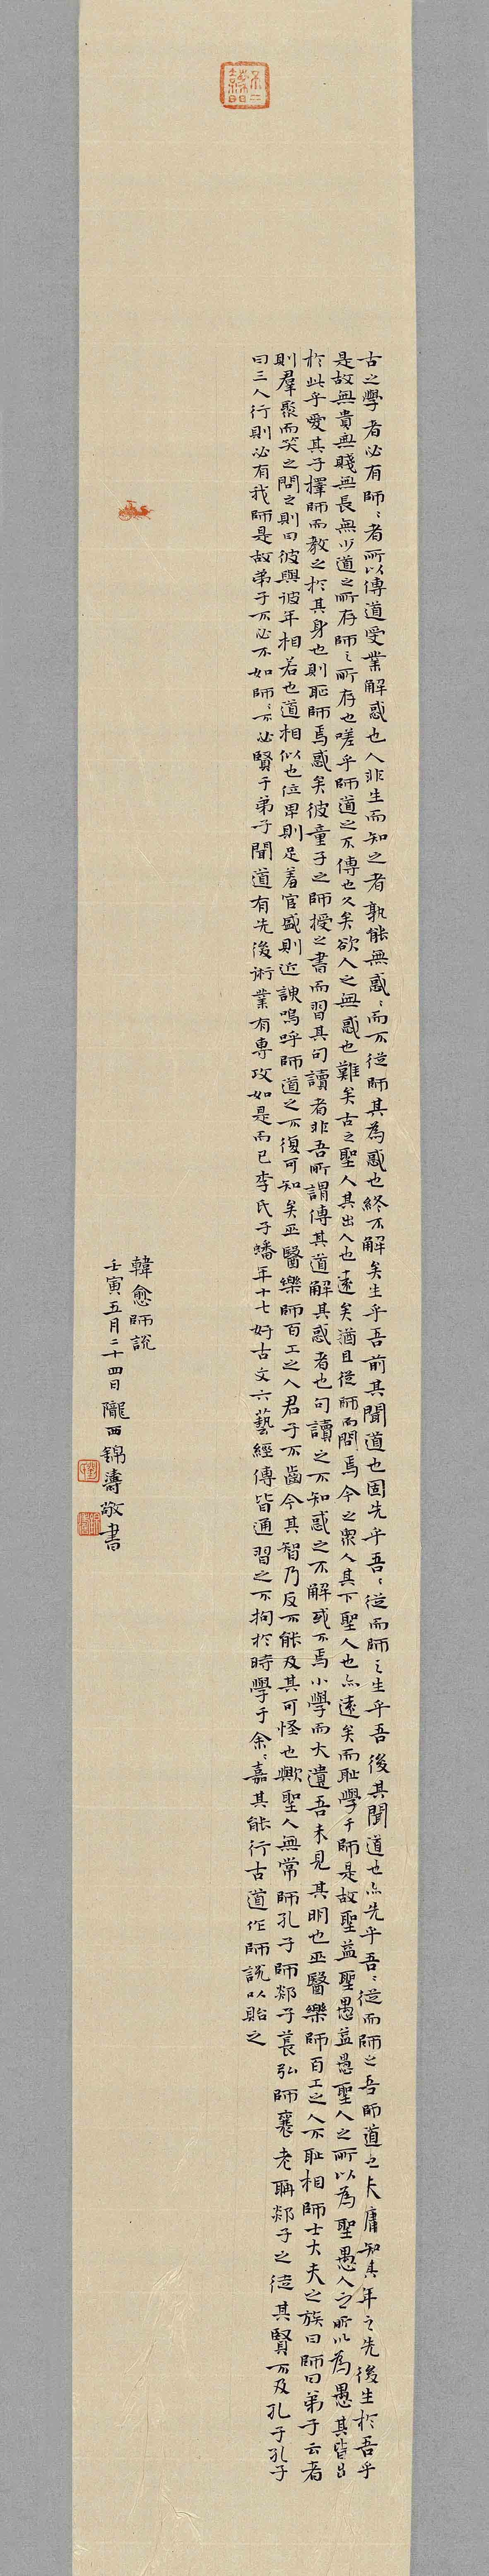 古之學者必有師〻者所以傳道受業解惑也人非生而知之者孰能無惑〻而不從師其為惑也終不解矣生乎吾前其聞道也固先乎吾〻從而師之生乎吾後其聞道也亦先乎吾〻從而師之吾師道也夫庸知其年之先後生於吾乎
是故無貴無賤無長無少道之所存師之所存也嗟乎師道之不傳也久矣欲人之無惑也難矣古之聖人其出人也遠矣猶且從師而問焉今之眾人其下聖人也亦遠矣而恥學于師是故聖益聖愚益愚聖人之所以為聖愚人之所以為愚其皆出
於此乎愛其子擇師而教之於其身也則恥師焉惑矣彼童子之師授之書而習其句讀者非吾所謂傳其道解其惑者也句讀之不知惑之不解或不焉小學而大遺吾未見其明也巫醫樂師百工之人不恥相師士大夫之族曰師曰弟子云者
則羣聚而笑之問之則曰彼與彼年相若也道相似也位卑則足羞官盛則近諛嗚呼師道之不復可知矣巫醫樂師百工之人君子不齒今其智乃反不能及其可怪也歟聖人無常師孔子師郯子萇弘師襄老聃郯子之徒其賢不及孔子孔子
曰三人行則必有我師是故弟子不必不如師〻不必賢于弟子聞道有先後術業有專攻如是而已李氏子蟠年十七好古文六藝經傳皆通習之不拘於時學于余〻嘉其能行古道作師說以貽之
韓愈師說
壬寅五月二十四日隴西錦濤敬書